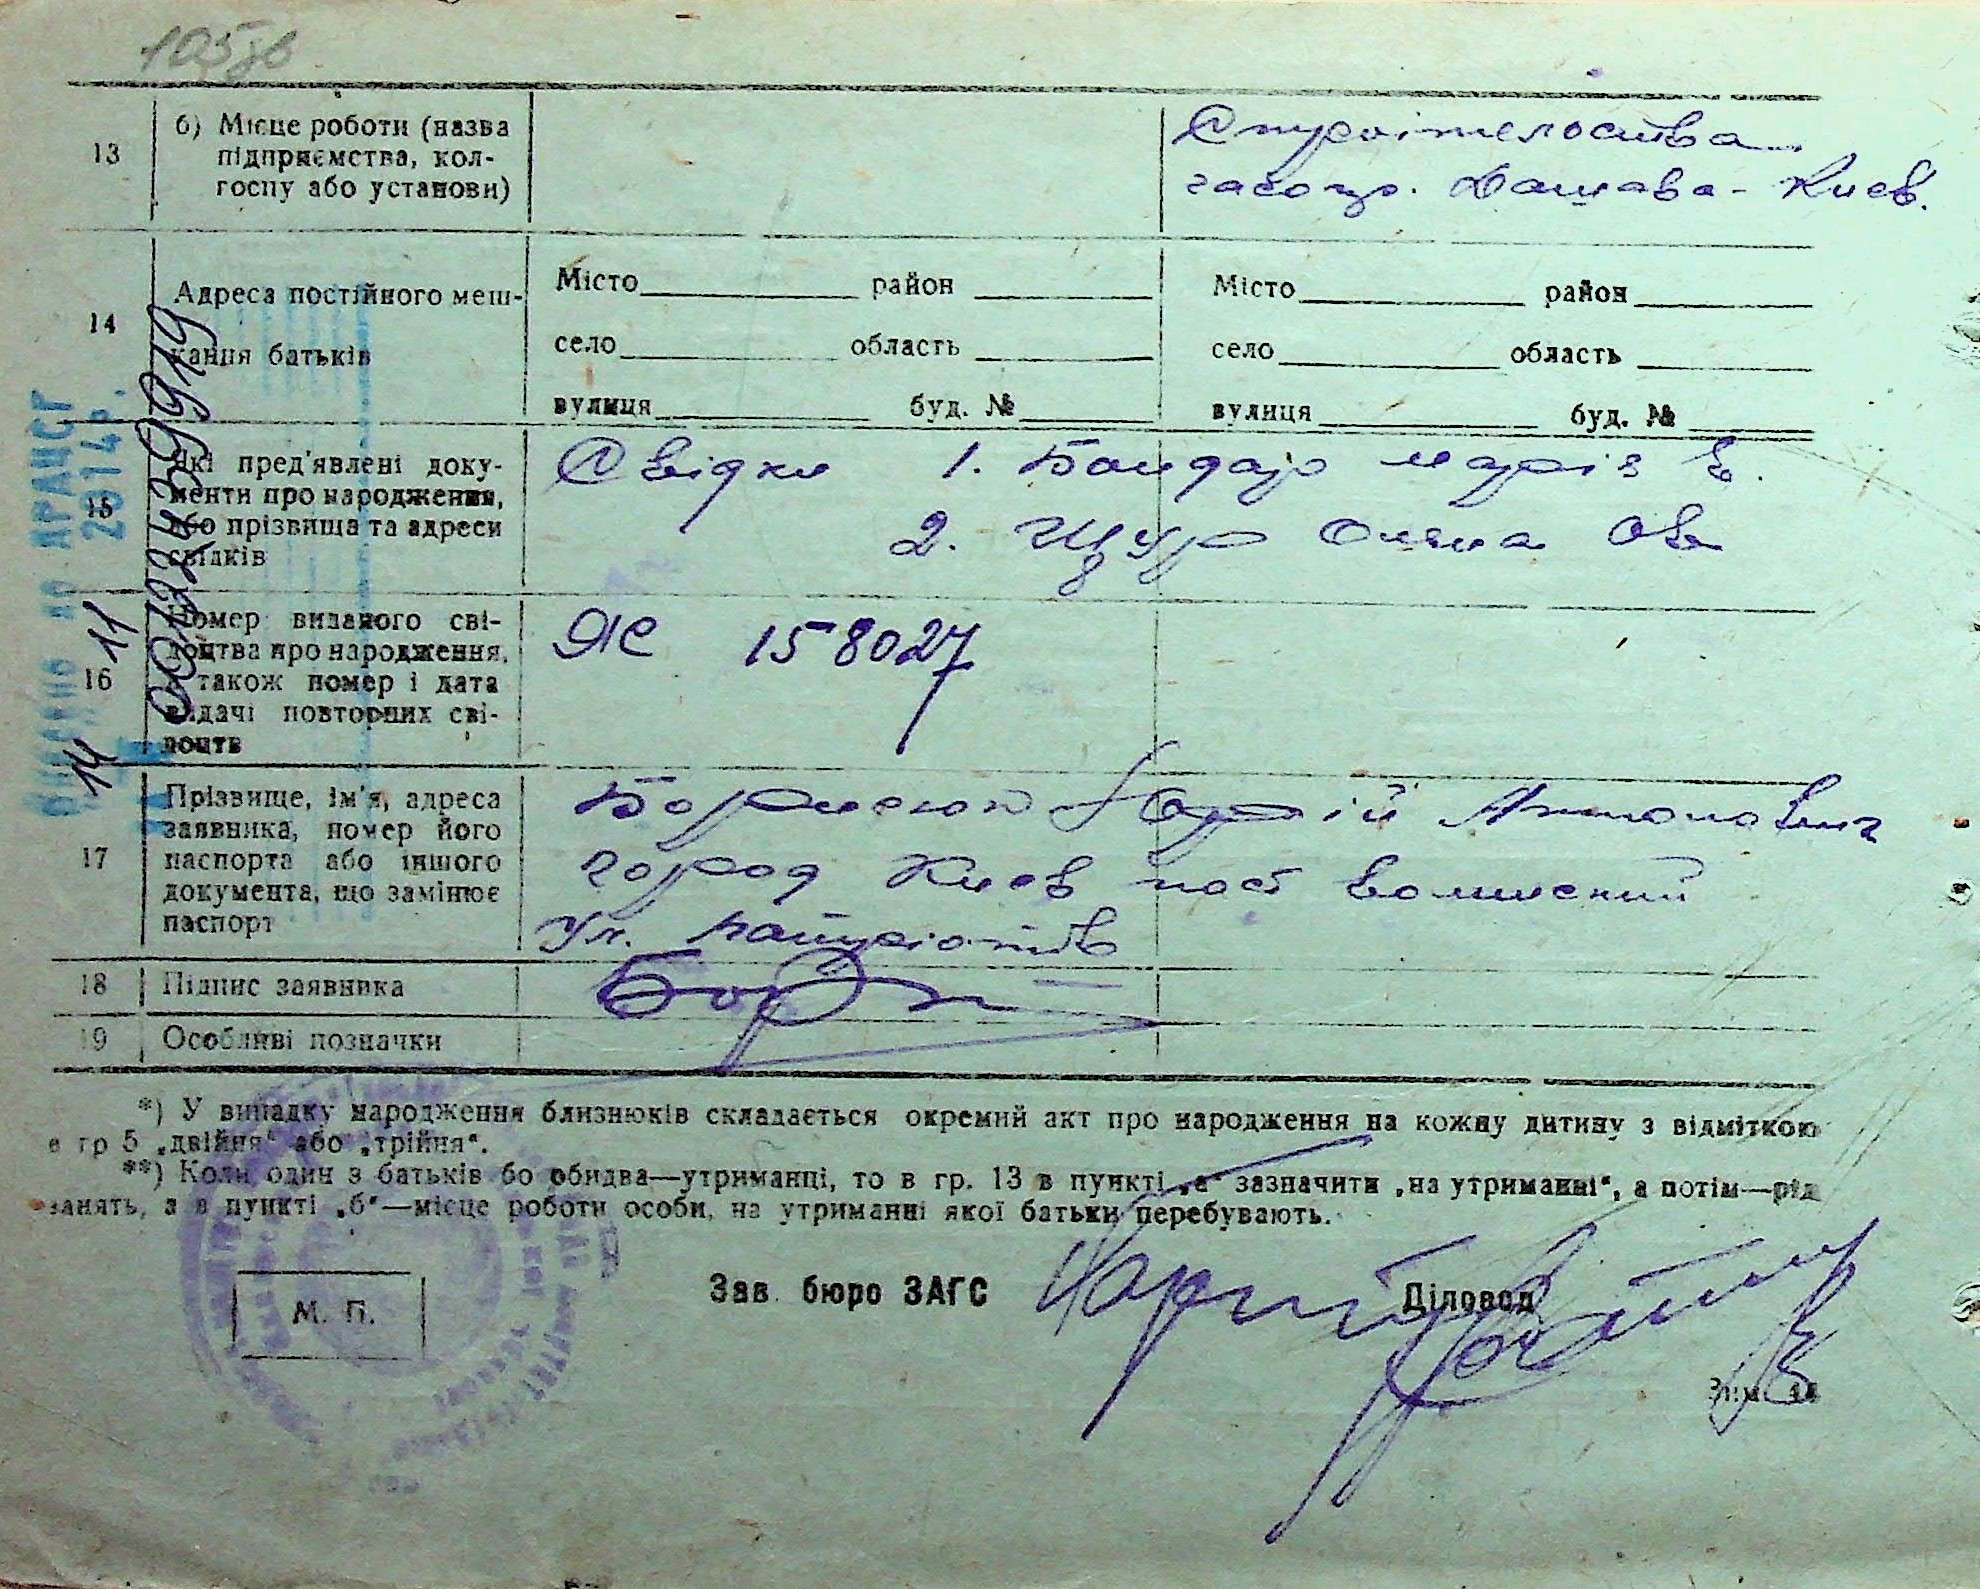 105зв
13
б) Місце роботи (назва
підприємства, кол-
госпу або установи)
Строітелоства
газопр. Дашава - Киев.
14
Адреса постійного меш-
кання батьків
Місто район
село область
вулиця буд. №
Місто район
село область
вулиця буд. №
15
Які пред'явлені доку-
менти про народження,
або прізвища та адреси
свідків
Свідки 1. Бондар Марія Е.
2. Щур Олена Ов
16
Номер виданого сві-
доцтва про народження,
а також номер і дата
видачі повторних сві-
доцтв
ЯС 158027
17
Прізвище, ім'я, адреса
заявника, номер його
паспорта або іншого
документа, що замінює
паспорт
Борисюк Антонович
город Киев пост Волинский
Ул. Патриотів
18
Підпис заявника
19
Особливі позначки
ДРАЦСГ
2014 р.
14 11
00122439919
*) У випадку народження близнюків складається окремий акт про народження на кожну дитину з відміткою
в гр 5 „двійня“ або „трійня“.
**) Коли один з батьків бо обидва—утриманці, то в гр. 13 в пункті „а“ зазначити „на утриманні“, а потім—рід
занять, а в пункті „б“—місце роботи особи, на утриманні якої батьки перебувають.
М. П.
Зав. бюро ЗАГС
Діловод